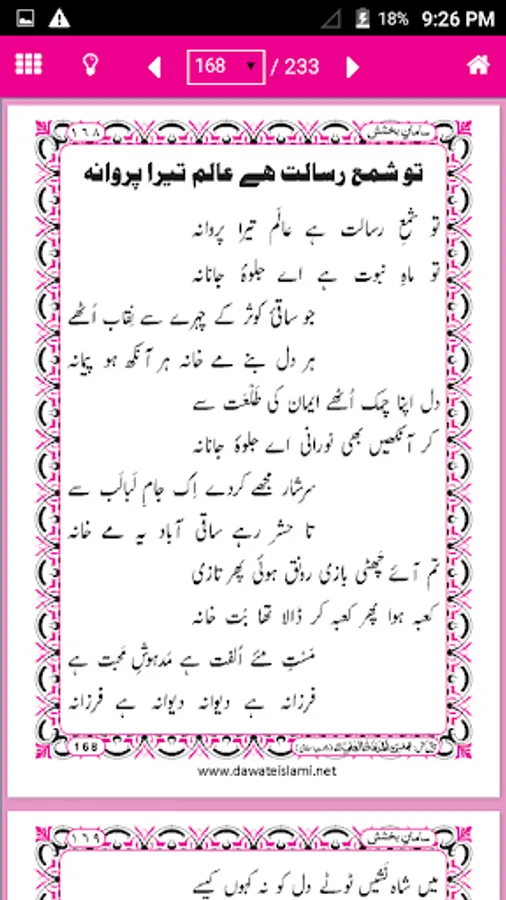 18% 9:26 PM
168 / 233
سامانِ بخشش ۱۶۸
تو شمع رسالت ہے عالم تیرا پروانہ
تو شمعِ رسالت ہے عالَم تیرا پروانہ
تو ماہِ نبوت ہے اے جلوۂ جانانہ
جو ساقیٔ کوثر کے چہرے سے نِقاب اُٹھے
ہر دل بنے مے خانہ ہر آنکھ ہو پیمانہ
دل اپنا چمک اُٹھے ایمان کی طَلْعَت سے
کر آنکھیں بھی نورانی اے جلوۂ جانانہ
سرشار مجھے کردے اِک جامِ لَبالَب سے
تا حشر رہے ساقی آباد یہ مے خانہ
تم آئے چَھٹی بازی رونق ہوئی پھر تازی
کعبہ ہوا پھر کعبہ کر ڈالا تھا بُت خانہ
مَستِ مئے اُلفت ہے مَدہوشِ محبت ہے
فرزانہ ہے دیوانہ دیوانہ ہے فرزانہ
168
www.dawateislami.net
سامانِ بخشش ۱۶۹
میں شاہ نَشیں ٹوٹے دل کو نہ کہوں کیسے